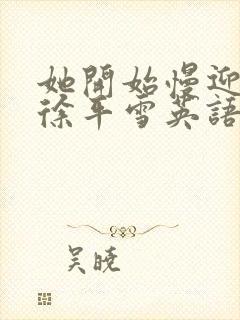 她開始慢迎
徐平雪英語
吴曉